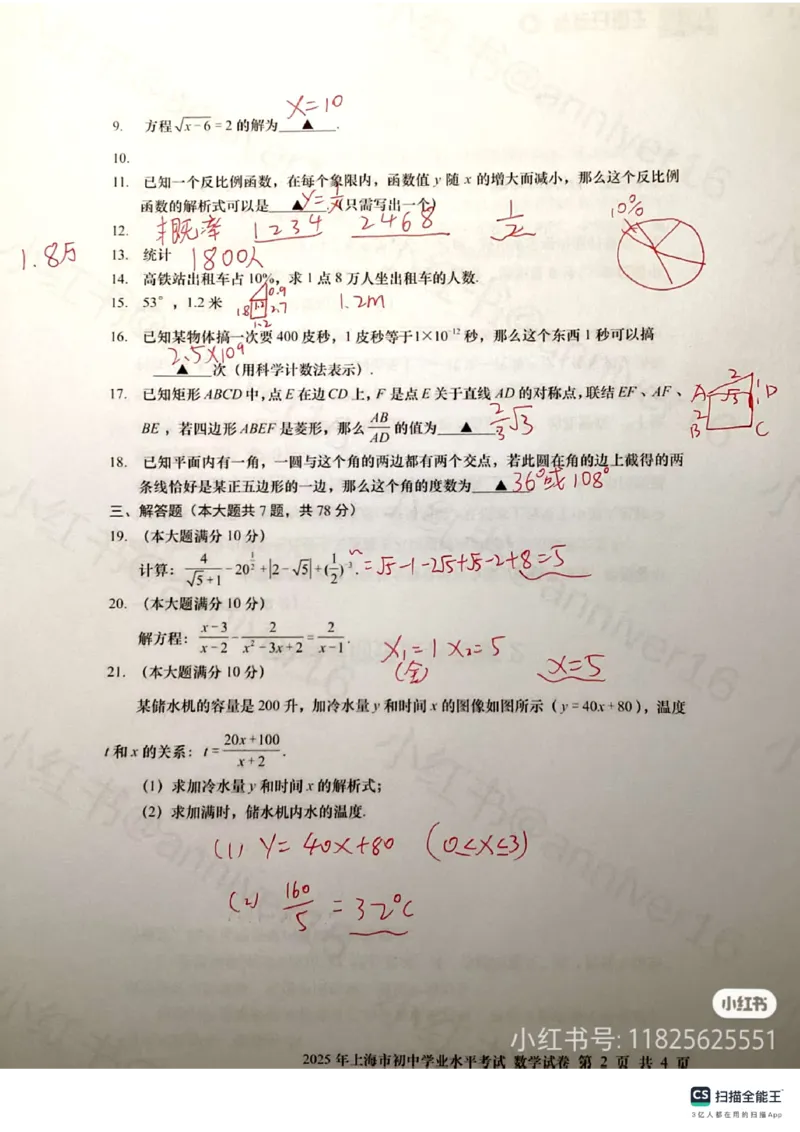 X=10
9. 方程√x-6=2的解为 ▲ .
10.
11. 已知一个反比例函数，在每个象限内，函数值 y 随 x 的增大而减小，那么这个反比例
函数的解析式可以是 ▲ .（只需写出一个） y=1/x
12. 概率 1234 2468 1/2
10%
1.8万
13. 统计 1800人
14. 高铁站出租车占 10%，求 1 点 8 万人坐出租车的人数.
15. 53°，1.2 米 1.8 1.2 0.9 2.7 1.2 1.2m
16. 已知某物体搞一次要 400 皮秒，1 皮秒等于1×10⁻¹² 秒，那么这个东西 1 秒可以搞
2.5×10⁹
▲ 次（用科学计数法表示）.
17. 已知矩形 ABCD 中，点 E 在边 CD 上，F 是点 E 关于直线 AD 的对称点，联结 EF、AF、
BE，若四边形 ABEF 是菱形，那么 AB/AD 的值为 ▲ . 2/3√3
A 2 1 D √3 1 2 B C
18. 已知平面内有一角，一圆与这个角的两边都有两个交点，若此圆在角的边上截得的两
条线恰好是某正五边形的一边，那么这个角的度数为 ▲ 36°或108°
三、解答题（本大题共 7 题，共 78 分）
19. （本大题满分 10 分）
计算：4/(√5+1)-20^(1/2)+|2-√5|+(1/2)⁻³. =√5-1-2√5+√5-2+8=5
20. （本大题满分 10 分）
解方程：(x-3)/(x-2)-2/(x²-3x+2)=2/(x-1).
X₁=1 X₂=5
(舍) X=5
21. （本大题满分 10 分）
某储水机的容量是 200 升，加冷水量 y 和时间 x 的图像如图所示（y=40x+80），温度
t 和 x 的关系：t=(20x+100)/(x+2).
（1）求加冷水量 y 和时间 x 的解析式；
（2）求加满时，储水机内水的温度.
(1) y=40x+80 (0≤x≤3)
(2) 160/5=32°C
小红书
小红书号: 11825625551
2025 年上海市初中学业水平考试 数学试卷 第 2 页 共 4 页
CS 扫描全能王
3亿人都在用的扫描App